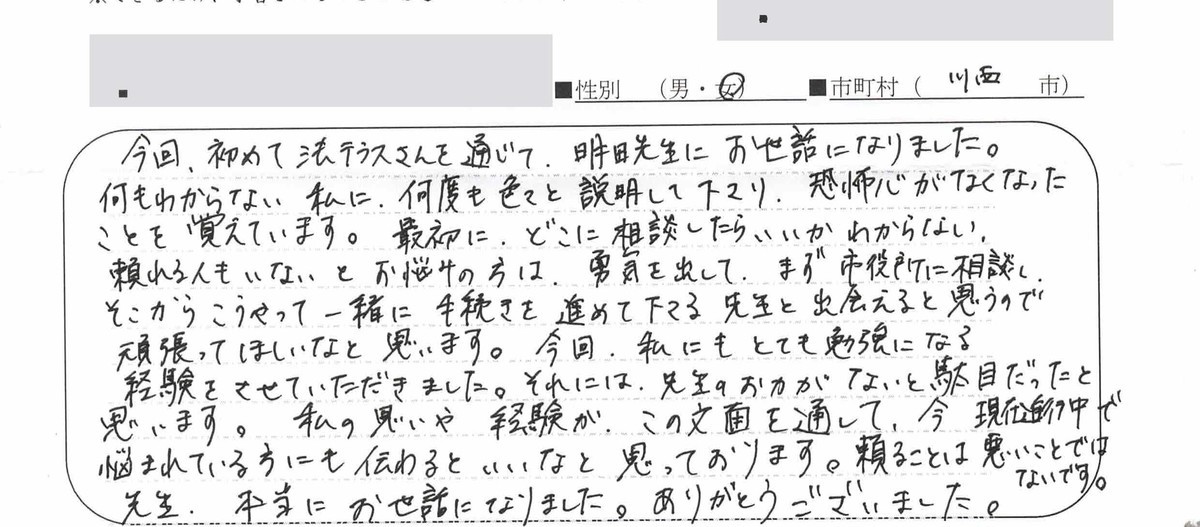 ■性別 （男・女） ■市町村（ 川西 市）
今回、初めて法テラスさんを通じて、明田先生にお世話になりました。
何もわからない私に、何度も色々と説明して下さり、恐怖心がなくなった
ことを覚えています。最初に、どこに相談したらいいかわからない、
頼れる人もいないとお悩みの方は、勇気を出して、まず市役所に相談し、
そこからこうやって一緒に手続きを進めて下さる先生と出会えると思うので
頑張ってほしいなと思います。今回、私にもとても勉強になる
経験をさせていただきました。それには、先生のお力がないと駄目だったと
思います。私の思いや経験が、この文面を通して、今現在進行中で
悩まれている方にも伝わるといいなと思っております。頼ることは悪いことでは
ないです。
先生、本当にお世話になりました。ありがとうございました。